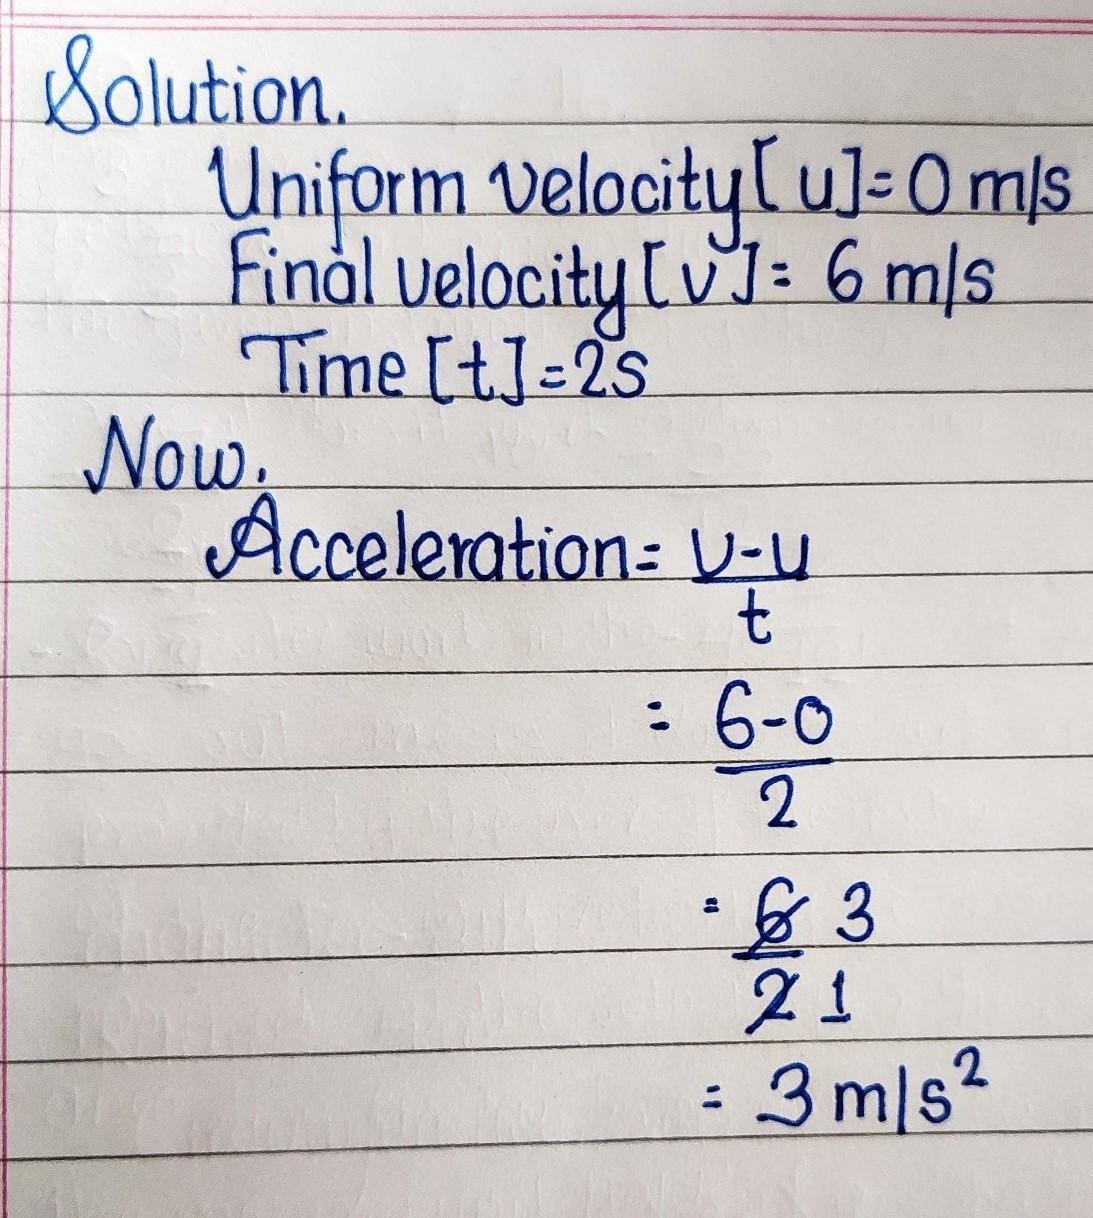 Solution.
Uniform velocity[u]=0 m/s
Final velocity[v]= 6 m/s
Time [t]=2s
Now.
Acceleration= v-u
t
= 6-0
2
= 6 3
2 1
= 3 m/s²